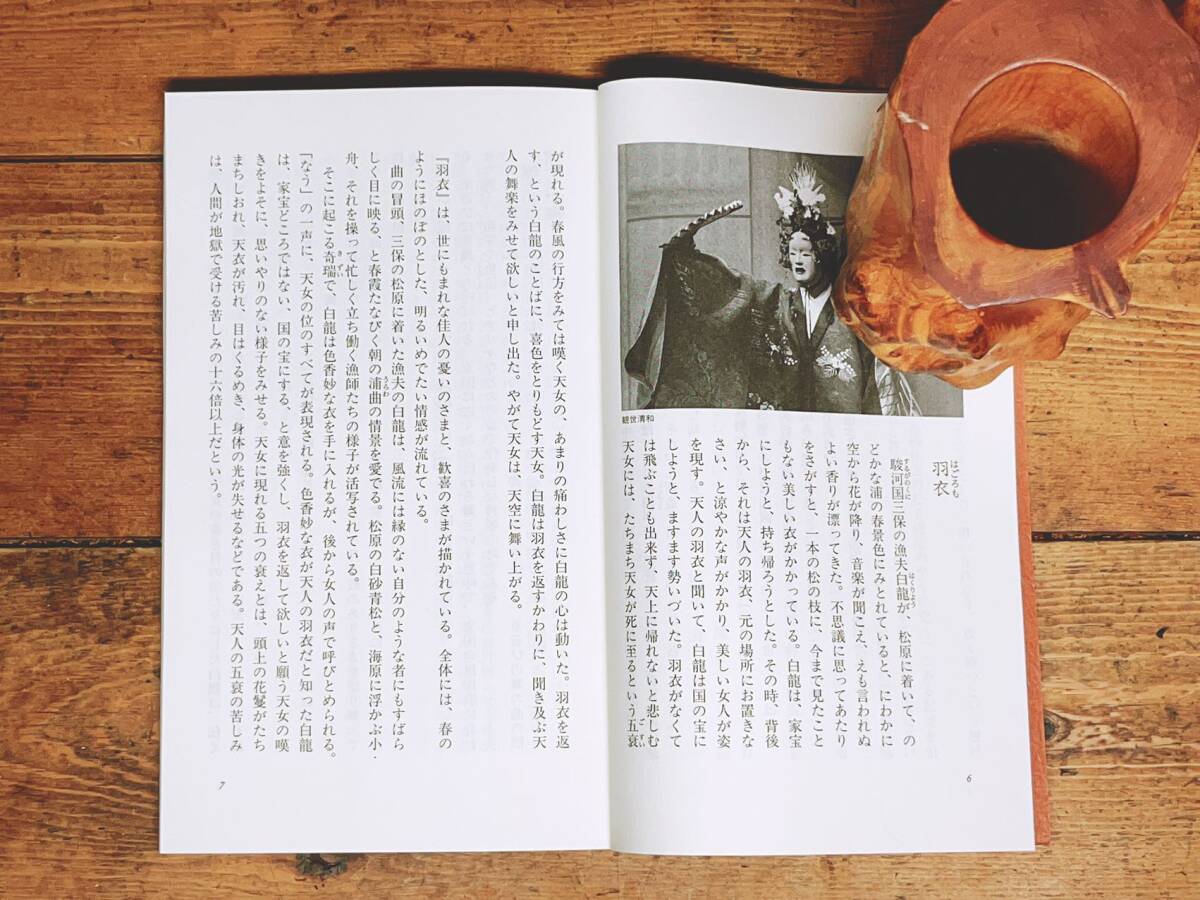 観世清和
はごろも
羽衣
するがのくに
はくりよう
駿河国三保の漁夫白龍が、松原に着いて、の
どかな浦の春景色にみとれていると、にわかに
空から花が降り、音楽が聞こえ、えも言われぬ
よい香りが漂ってきた。不思議に思ってあたり
をさがすと、一本の松の枝に、今まで見たこと
もない美しい衣がかかっている。白龍は、家宝
にしようと、持ち帰ろうとした。その時、背後
から、それは天人の羽衣、元の場所にお置きな
さい、と涼やかな声がかかり、美しい女人が姿
を現す。天人の羽衣と聞いて、白龍は国の宝に
しようと、ますます勢いづいた。羽衣がなくて
は飛ぶことも出来ず、天上に帰れないと悲しむ
ごすい
天女には、たちまち天女が死に至るという五衰
6
が現れる。春風の行方をみては嘆く天女の、あまりの痛わしさに白龍の心は動いた。羽衣を返
す、という白龍のことばに、喜色をとりもどす天女。白龍は羽衣を返すかわりに、聞き及ぶ天
人の舞楽をみせて欲しいと申し出た。やがて天女は、天空に舞い上がる。
『羽衣』は、世にもまれな佳人の憂いのさまと、歓喜のさまが描かれている。全体には、春の
ようにほのぼのとした、明るいめでたい情感が流れている。
曲の冒頭、三保の松原に着いた漁夫の白龍は、風流には縁のない自分のような者にもすばら
うらわ
しく目に映る、と春霞たなびく朝の浦曲の情景を愛でる。松原の白砂青松と、海原に浮かぶ小
舟、それを操って忙しく立ち働く漁師たちの様子が活写されている。
きずい
そこに起こる奇瑞で、白龍は色香妙な衣を手に入れるが、後から女人の声で呼びとめられる。
「なう」の一声に、天女の位のすべてが表現される。色香妙な衣が天人の羽衣だと知った白龍
は、家宝どころではない、国の宝にする、と意を強くし、羽衣を返して欲しいと願う天女の嘆
きをよそに、思いやりのない様子をみせる。天女に現れる五つの衰えとは、頭上の花鬘がたち
まちしおれ、天衣が汚れ、目はくるめき、身体の光が失せるなどである。天人の五衰の苦しみ
は、人間が地獄で受ける苦しみの十六倍以上だという。
7